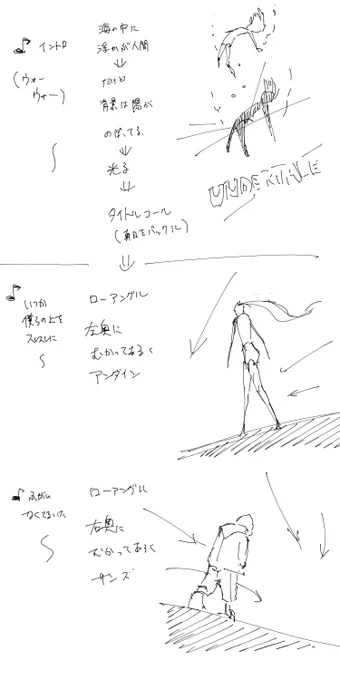 イントロ
(ウォー
ウォー)
海の中に
浮かぶ人間
⇓
背景は陽が
のぼってる
⇓
光る
⇓
タイトルコール
(朝日をバックに)
⇓
UNDERTALE
いつか
僕らの上を
スレスレに
ローアングル
左奥に
むかってあるく
アンダイン
なくてもいい
ローアングル
右奥に
むかってあるく
サンズ